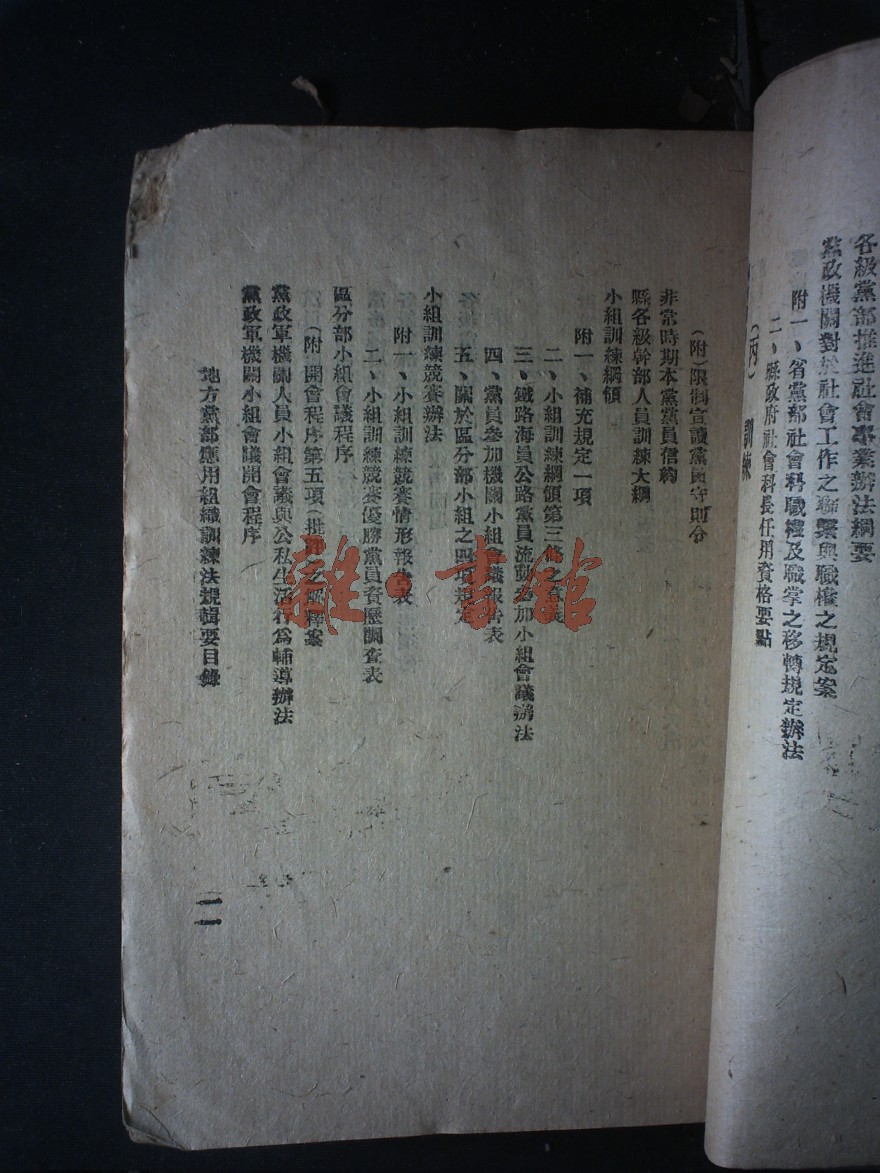 各級黨部推進社會事業辦法綱要
黨政機關對於社會工作之聯繫與職權之規定案
附一、省黨部社會科職權及職掌之移轉規定辦法
二、縣政府社會科長任用資格要點
(丙) 訓練
(附)限制宣讀黨員守則令
非常時期本黨黨員信約
縣各級幹部人員訓練大綱
小組訓練綱領
附一、補充規定一項
二、小組訓練綱領第三條之
三、鐵路海員公路黨員流動參加小組會議辦法
四、黨員參加機關小組會議報告表
五、關於區分部小組之四項規定
小組訓練競賽辦法
附一、小組訓練競賽情形報告表
二、小組訓練競賽優勝黨員資歷調查表
區分部小組會議程序
(附)開會程序第五項(批評)之解釋案
黨政軍機關人員小組會議與公私生活行為輔導辦法
黨政軍機關小組會議開會程序
地方黨部應用組織訓練法規輯要目錄
二
雜·書館